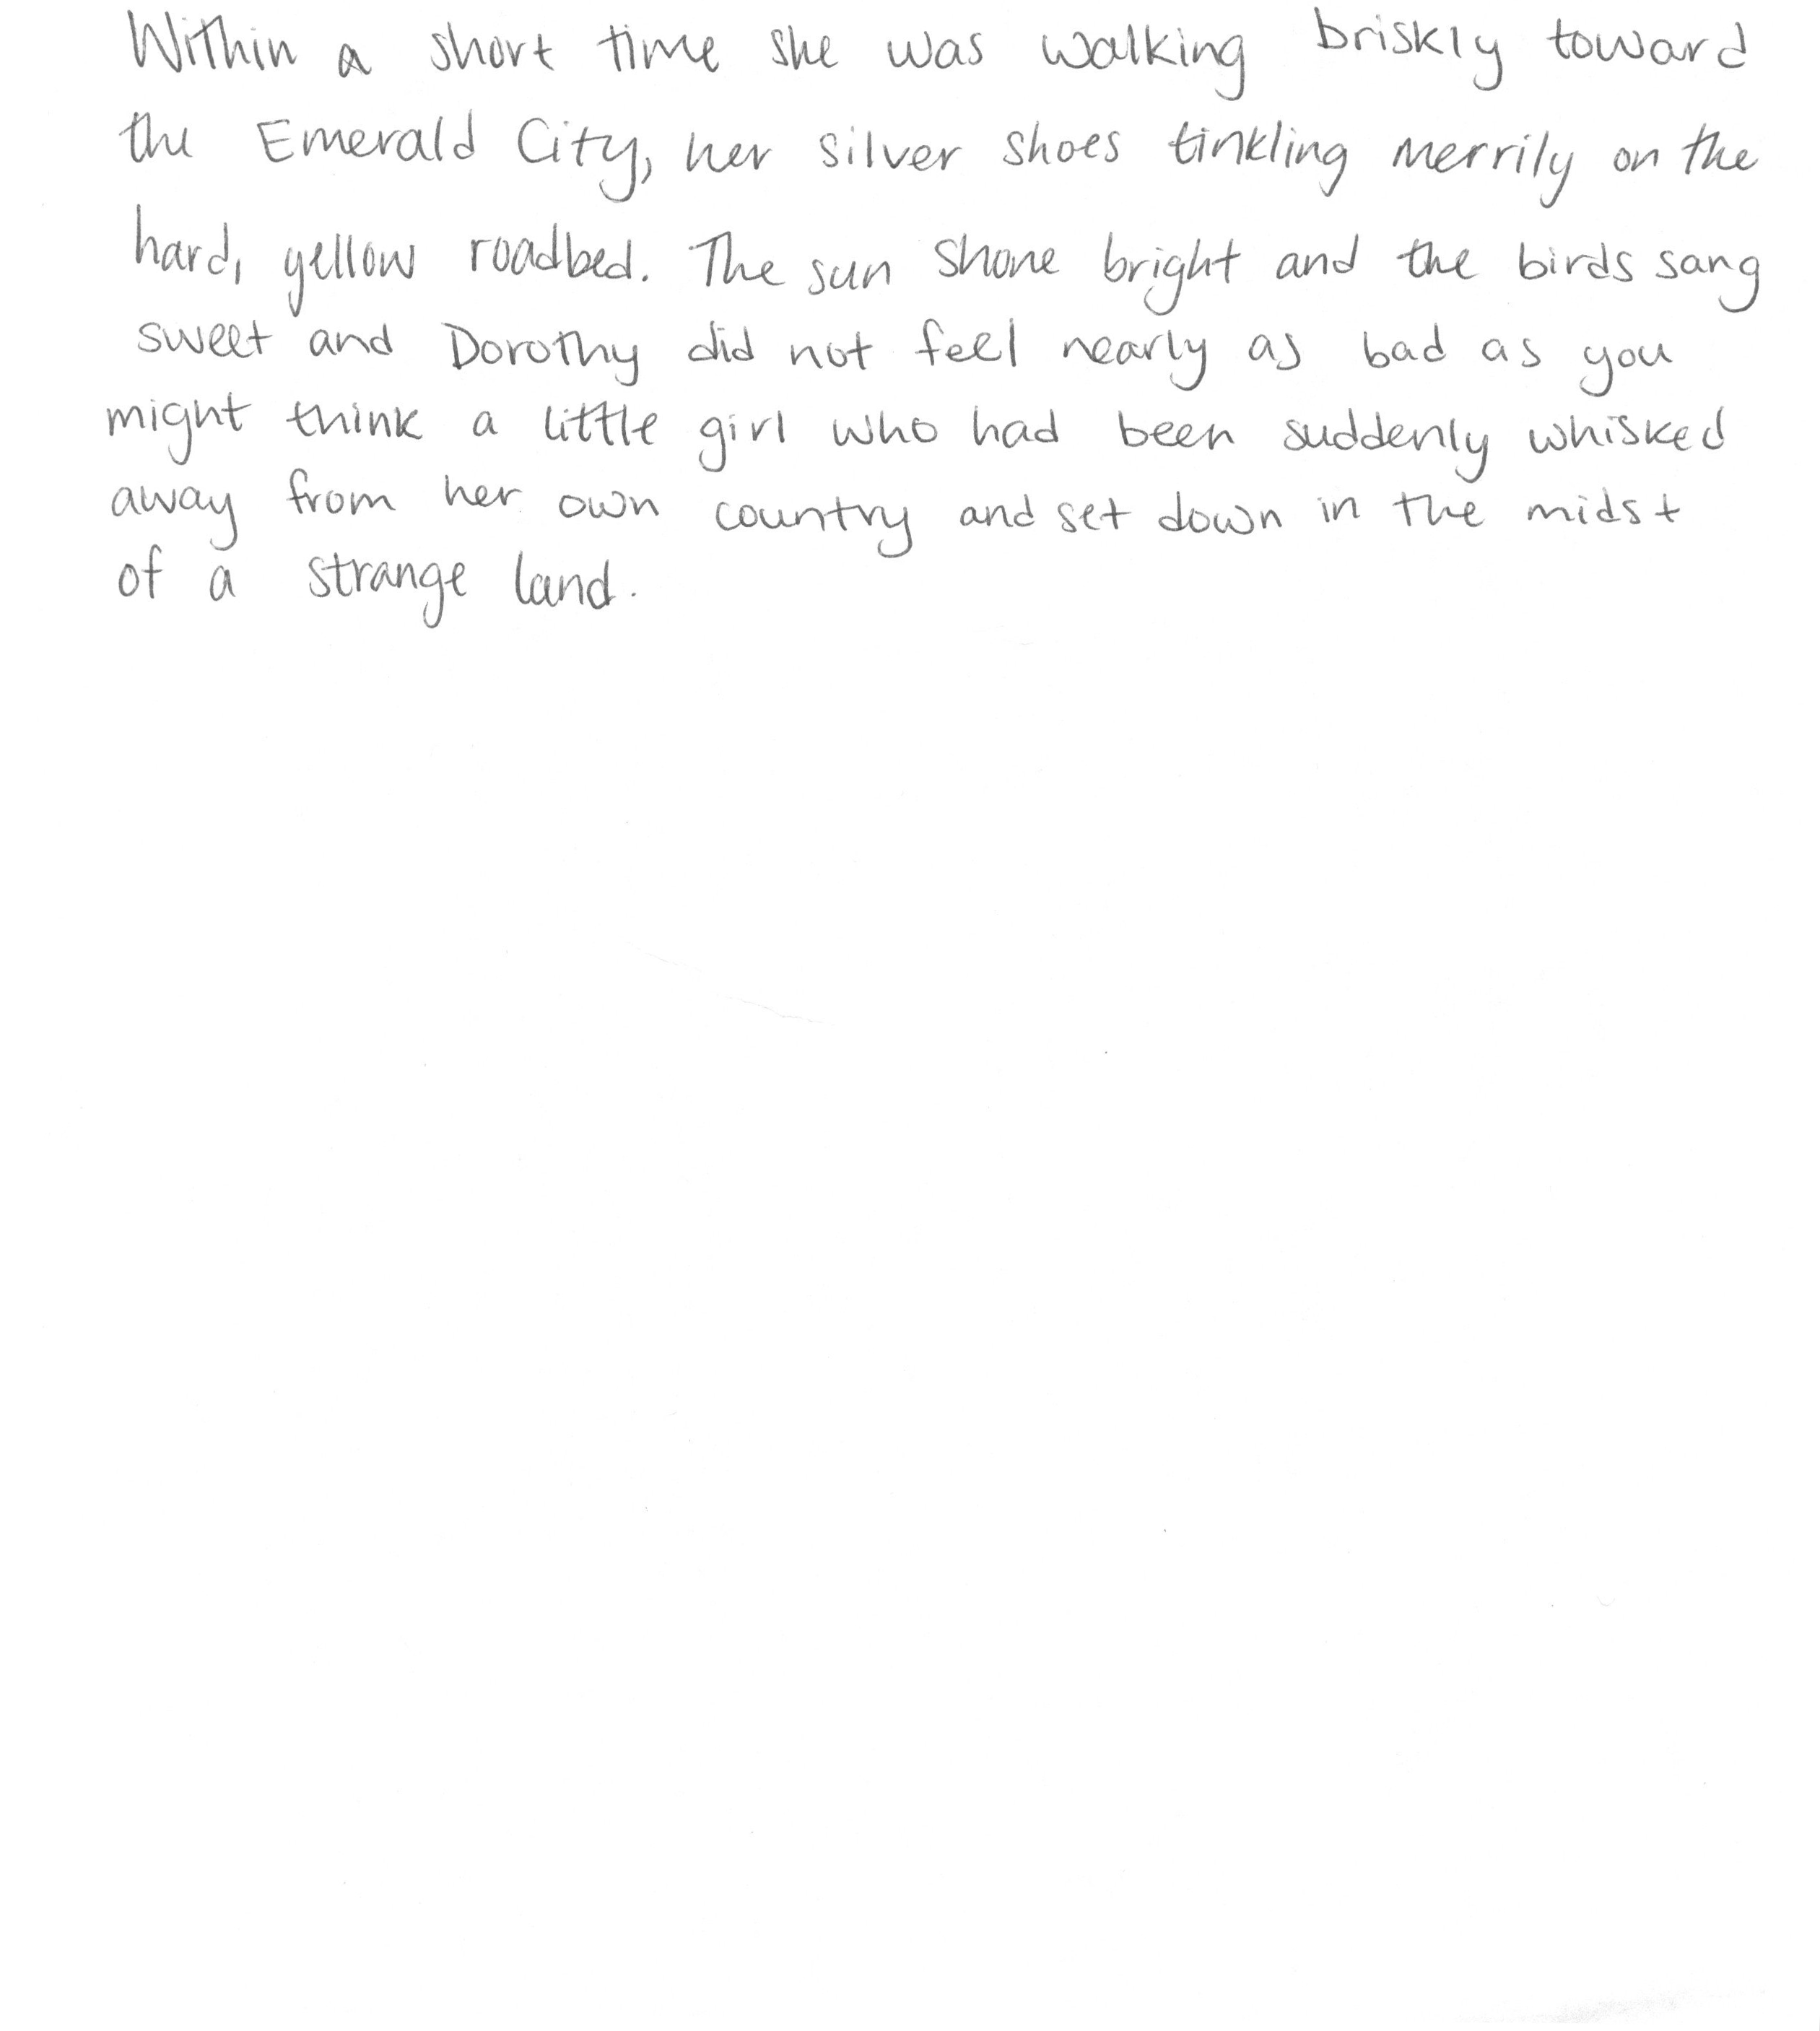 Within a short time she was walking briskly toward
the Emerald City, her silver shoes tinkling merrily on the
hard, yellow roadbed. The sun shone bright and the birds sang
sweet and Dorothy did not feel nearly as bad as you
might think a little girl who had been suddenly whisked
away from her own country and set down in the midst
of a strange land.